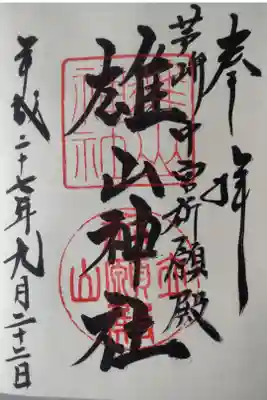 奉拝
芦峅中宮祈願殿
雄山神社
平成二十七年九月二十二日